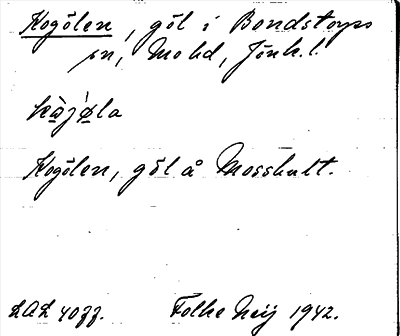 Kogölen, göl i Bondstorps
sn, Mo hd, Jönk. l.
kò̱jø̱̍la
Kogölen, göl å Mosshult.
Folke Neij 1942.